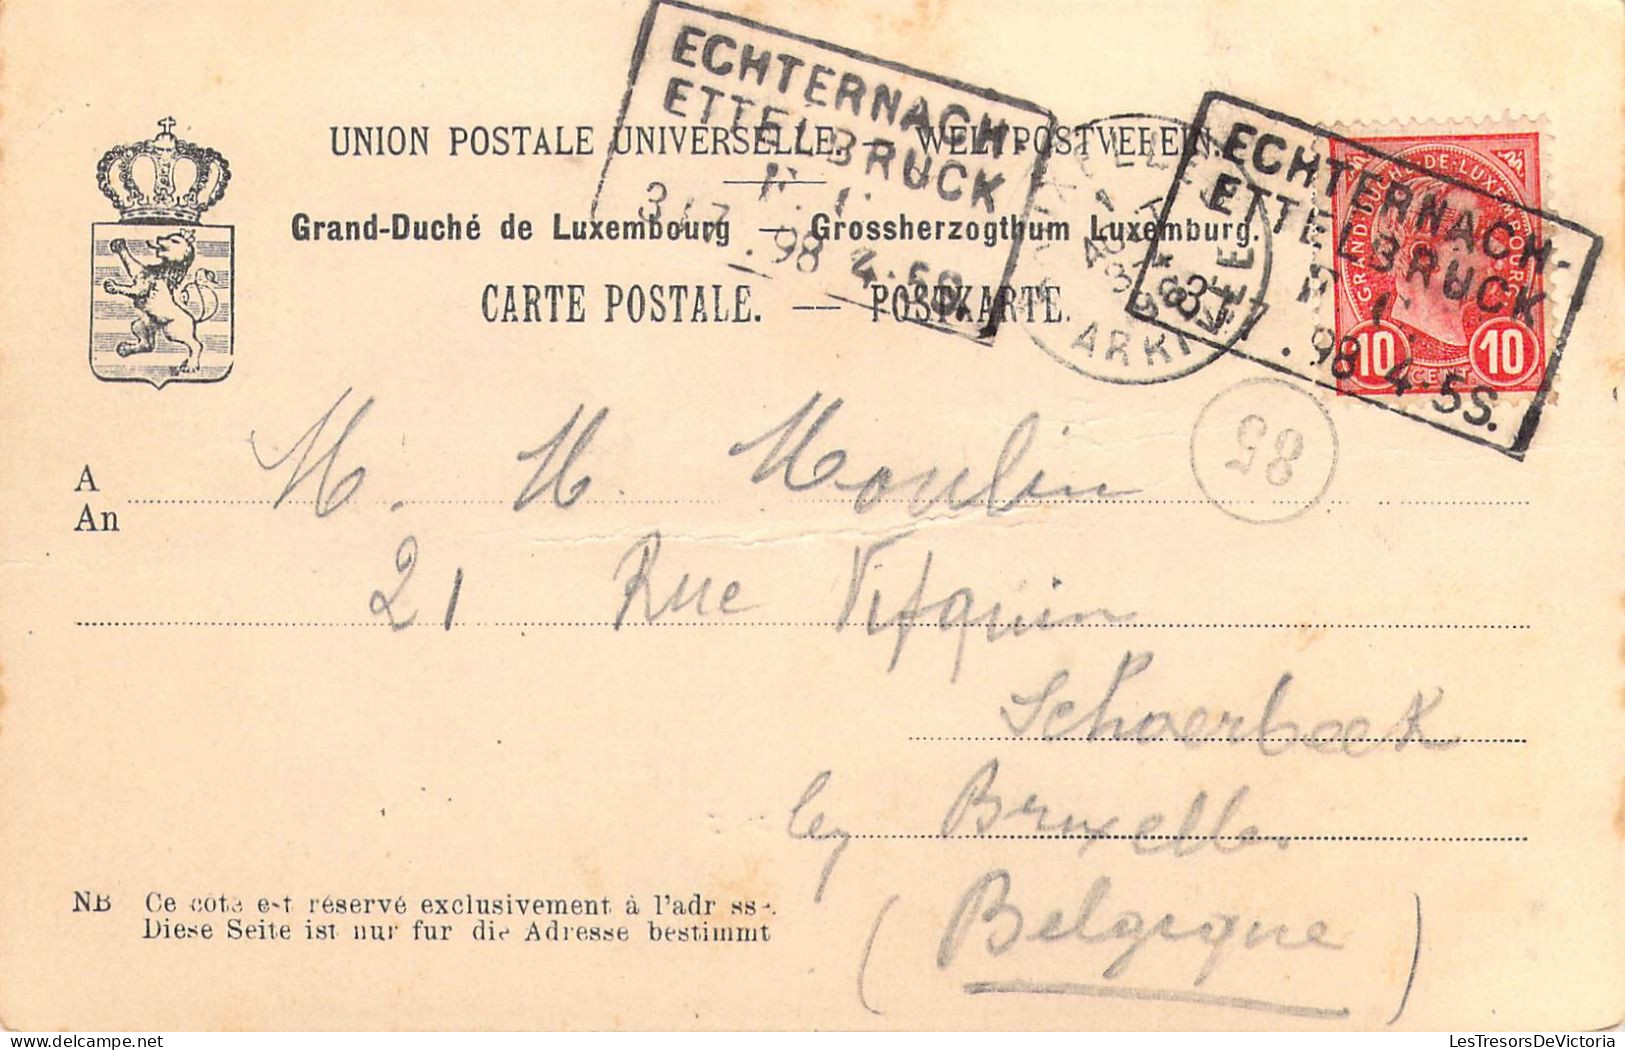 ECHTERNACH-
ETTELBRUCK
31.7.98 4.5S.
UNION POSTALE UNIVERSELLE. — WELTPOSTVEREIN.
Grand-Duché de Luxembourg — Grossherzogthum Luxemburg.
CARTE POSTALE. — POSTKARTE.
BRUXELLES
1 AOUT
ARRIVEE
ECHTERNACH-
ETTELBRUCK
31.7.98 4.5S.
GRAND-DUCHÉ-DE-LUXEMBOURG
10 CENT. 10
85
A
An
M. M. Moulin
21 Rue Vifquin
Schaerbeek
Bruxelles
(Belgique)
NB Ce côté est réservé exclusivement à l'adresse.
Diese Seite ist nur für die Adresse bestimmt
LesTresorsDeVictoria.com